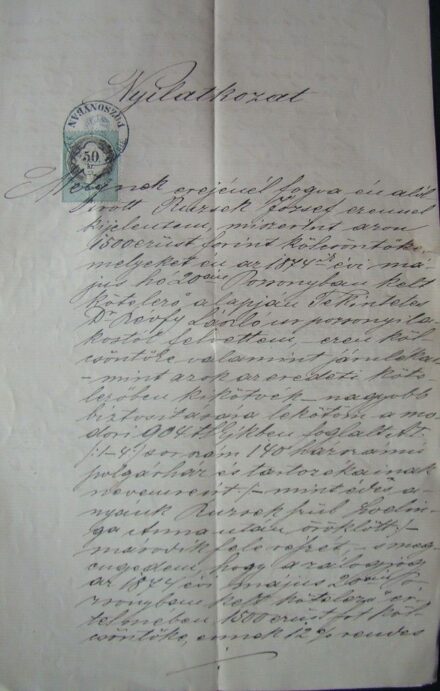 Nyilatkozat
POZSONYBAN
50
Melynek erejénél fogva én alól
írott Ruzsek József ezennel
kijelentem, miszerint azon
1500 ezüst forint kölcsöntőke
melyeket én az 1874ik évi má-
jus hó 20án Pozsonyban kelt
kötelező alapján Tekintetes
Dr Révfy László ur pozsonyi la-
kostól felvettem, ezen köl-
csöntőke valamint járuléka
- mint azok az eredeti köte-
lezőben kikötvék - nagyobb
biztosítására lekötöm a mo-
dori 904 tljkben foglalt A I
1-4 sor szám 140 ház számú
polgárház és tartozékainak
nevemre írt /- mint édes a-
nyánk Ruzsek szül
Anna után öröklött -/
második fele részét, - s meg-
engedem, hogy a zálogjog
az 1874 évi május 20án Po-
zsonyban kelt kötelező ér-
telmében, 1500 ezüst frt köl-
csöntőke, ennek 12 % rendes